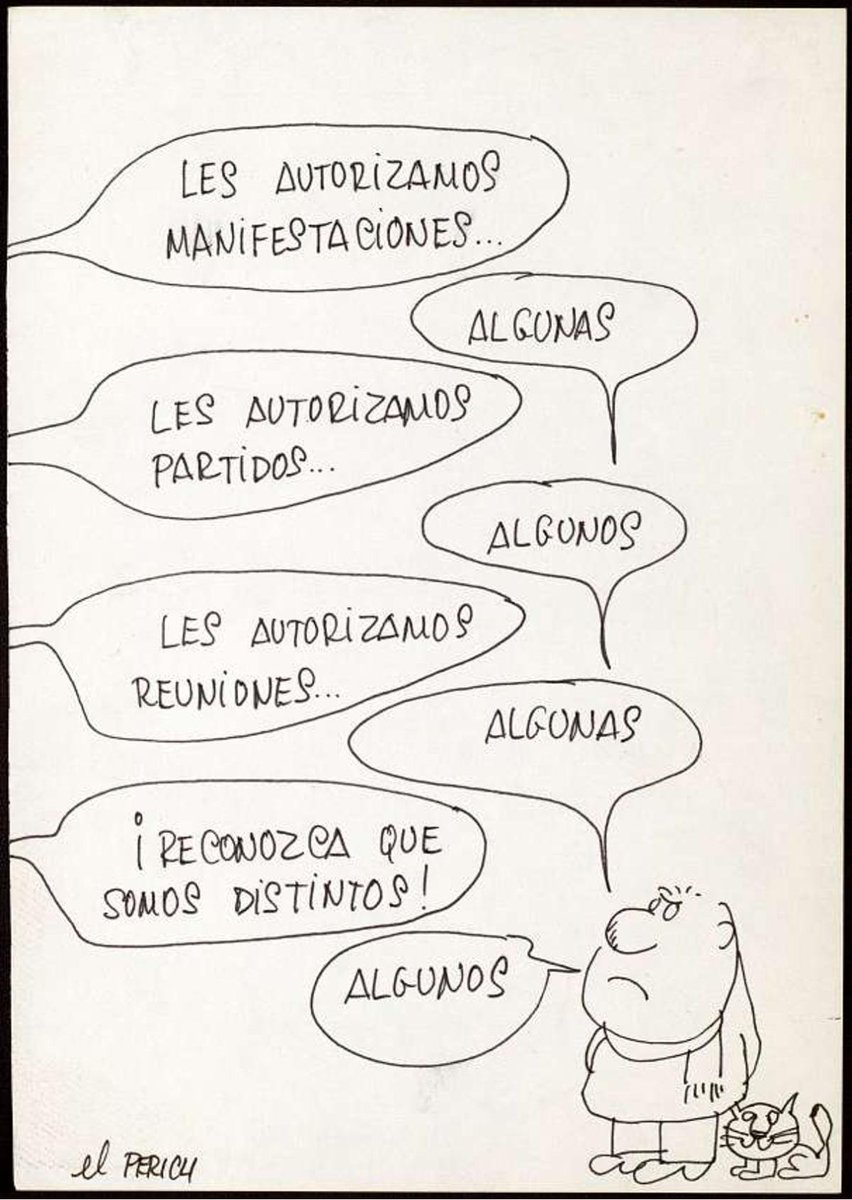 LES AUTORIZAMOS
MANIFESTACIONES...
ALGUNAS
LES AUTORIZAMOS
PARTIDOS...
ALGUNOS
LES AUTORIZAMOS
REUNIONES...
ALGUNAS
¡RECONOZCA QUE
SOMOS DISTINTOS!
ALGUNOS
el PERICH